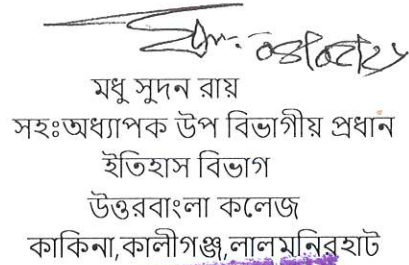 মধু সুদন রায়
সহঃঅধ্যাপক উপ বিভাগীয় প্রধান
ইতিহাস বিভাগ
উত্তরবাংলা কলেজ
কাকিনা,কালীগঞ্জ,লালমনিরহাট